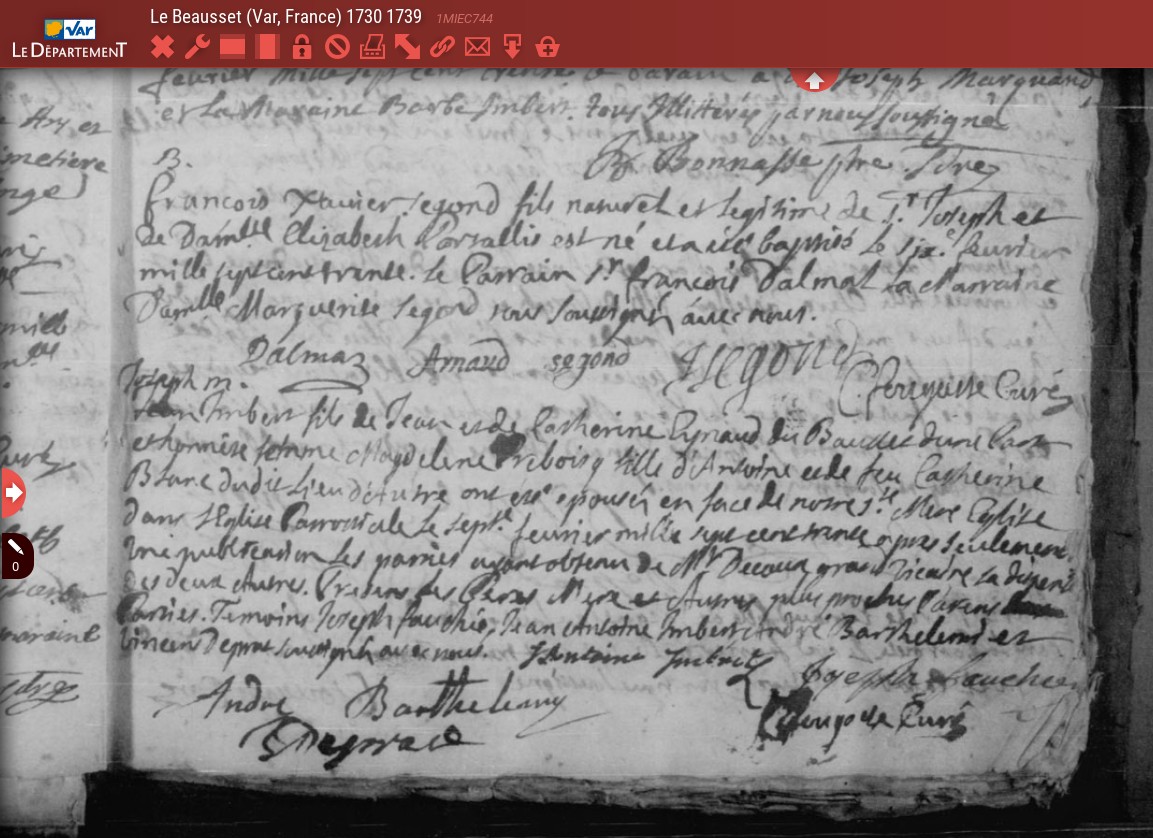 Le Beausset (Var, France) 1730 1739 1MIEC744
Var
LE DÉPARTEMENT
fevrier mille sept cent trente le parain a Joseph Marquand
et La Maraine Barbe Imbert. tous Illitérés par nous soussigné
Bonnasse ptre
B.
francois Xavier segond fils naturel et legitime de Sr. Joseph et
de Damlle Elizabeth Portallis est né et a été baptisé le six.e feuvrier
mille sept cent trente. le Parrain Sr francois Dalmas La Marraine
Damlle Marguerite segond tous soussignés avec nous.
Dalmas Arnaud segond J Segond
Curé
Joseph m.
Jean Imbert fils de Jean et de Catherine du Bausset d'une Part
et honnete femme Magdelene fille d'Antoine et de feu Catherine
Blanc dudit Lieu d'Autre ont été epousés en face de notre Ste Mere Eglise
dans l'Eglise Parroissiale le septe fevrier mille sept cent trente apres seulement
une publication les parties ayant obtenu de Mr Decoux grand Vicaire la dispense
des deux Autres. Presens les Peres Mere et Autres plus proches Parens
Parties. Temoins Joseph fauchie, Jean Antoine Imbert André Barthelemi et
soussignés avec nous. J Antoine Imbert
Joseph fauchie
André Barthelemy
Curé
0